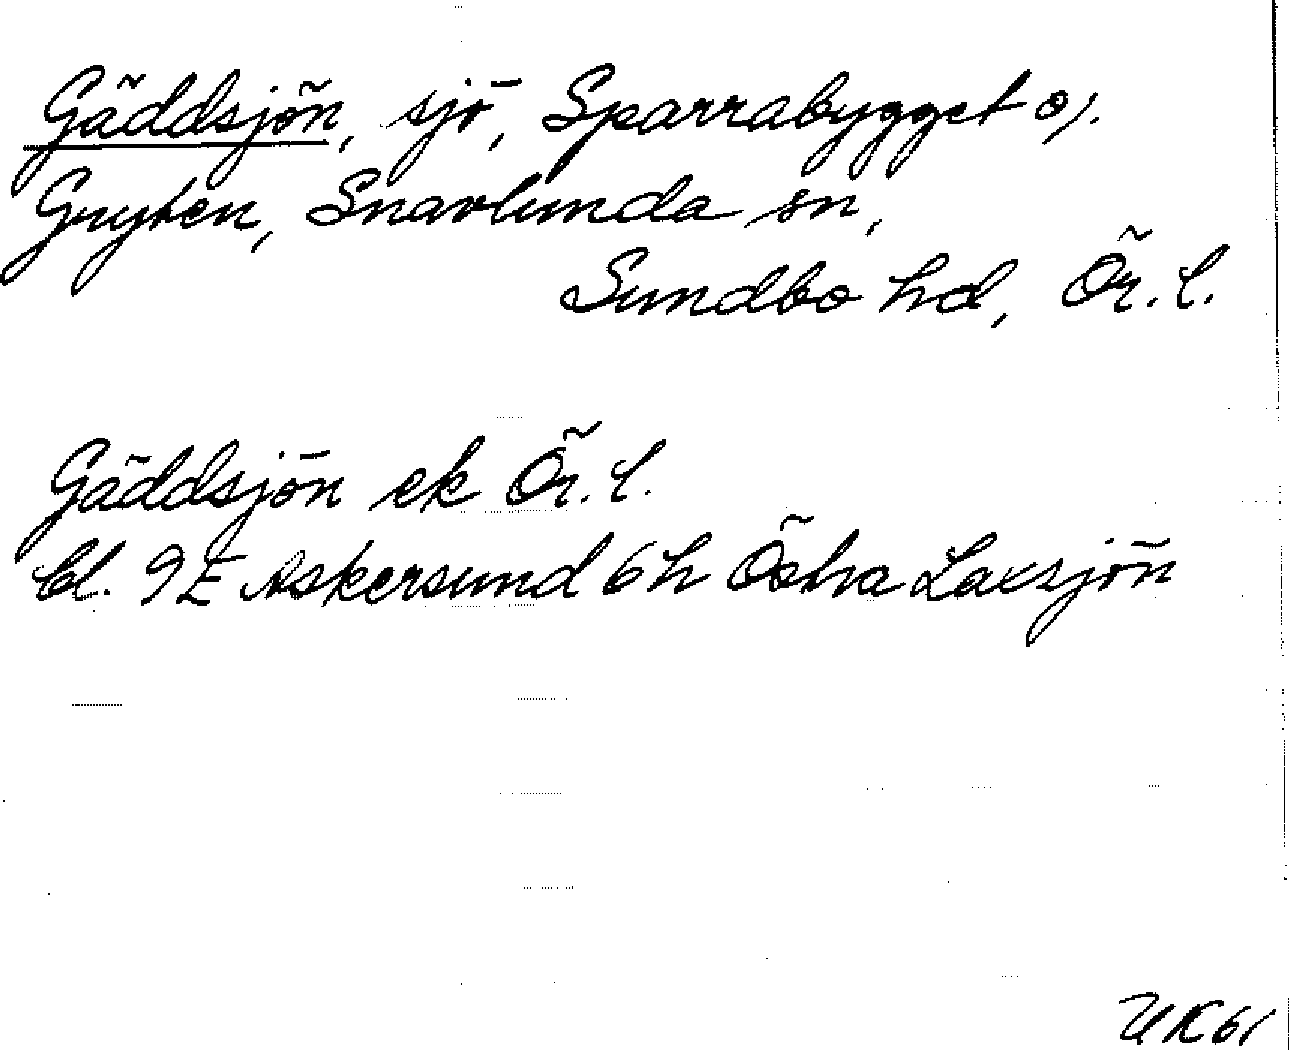 Gäddsjön, sjö, Sparrabygget o/.
Gryten, Snavlunda sn,
Sundbo hd, Ör. l.
Gäddsjön ek Ör. l.
bl. 9E Askersund 6h Östra Laxsjön
UK61